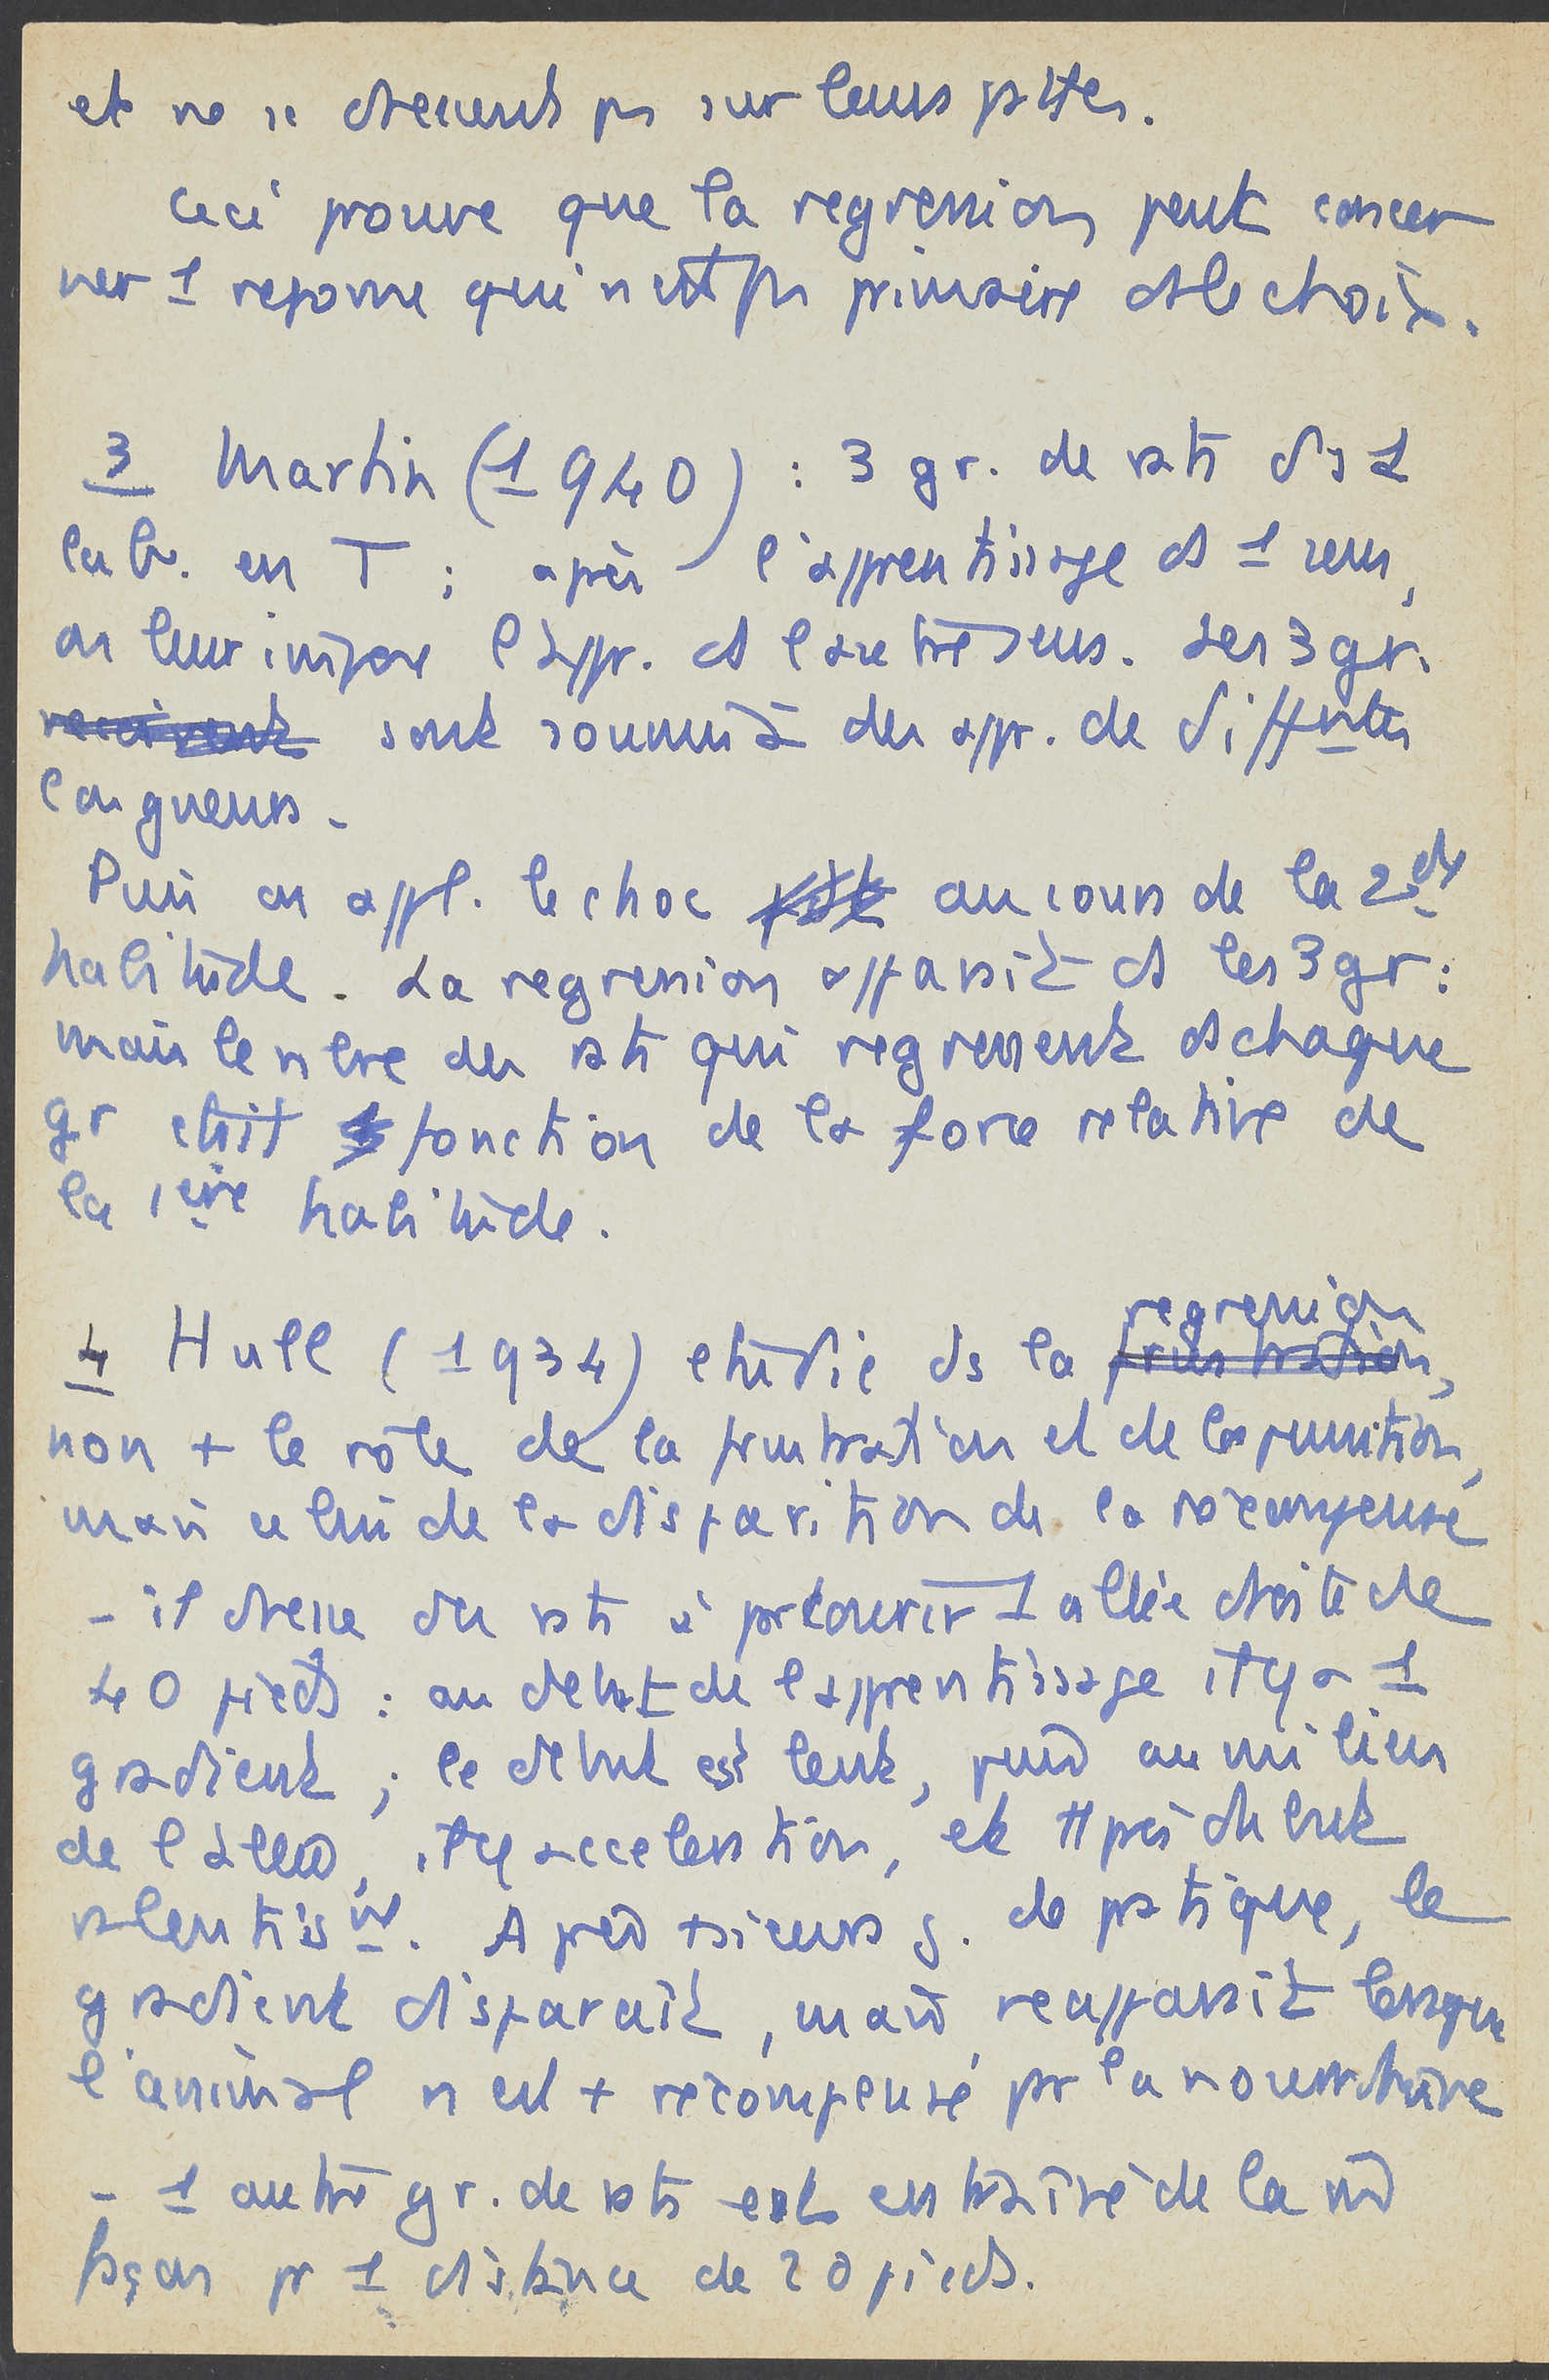 et ne se dressent ps sur leurs pattes.
Ceci prouve que la regression peut concer
ner 1 reponse qui n est ps primaire ds le choix.
3 Martin (1940) : 3 gr. de rats ds 1
lab. en T ; après l'apprentissage ds 1 sens,
on leur impose l appr. ds l autre sens. Les 3 gr.
recoivent sont soumis à des appr. de diffntes
longueurs.
Puis on appl. le choc au cours de la 2de
habitude. La regression apparait ds les 3 gr :
mais le nbre des rats qui regressent ds chaque
gr etait fonction de la force relative de
la 1ère habitude.
4 Hull (1934) etudie ds la frustration, regression
non + le rôle de la frustration et de la punition,
mais celui de la disparition de la récompense
- il dresse des rats à parcourir 1 allée droite de
40 pieds : au debut de l apprentissage il y a 1
gradient ; le debut est lent, puis au milieu
de l allée, il y acceleration, et près du but
ralentisnt. Après +sieurs j. de pratique, le
gradient disparait, mais reapparait lorsque
l'animal n est + récompensé pr la nourriture
- 1 autre gr. de rats est entraîné de la m̂
façon pr 1 distance de 20 pieds.